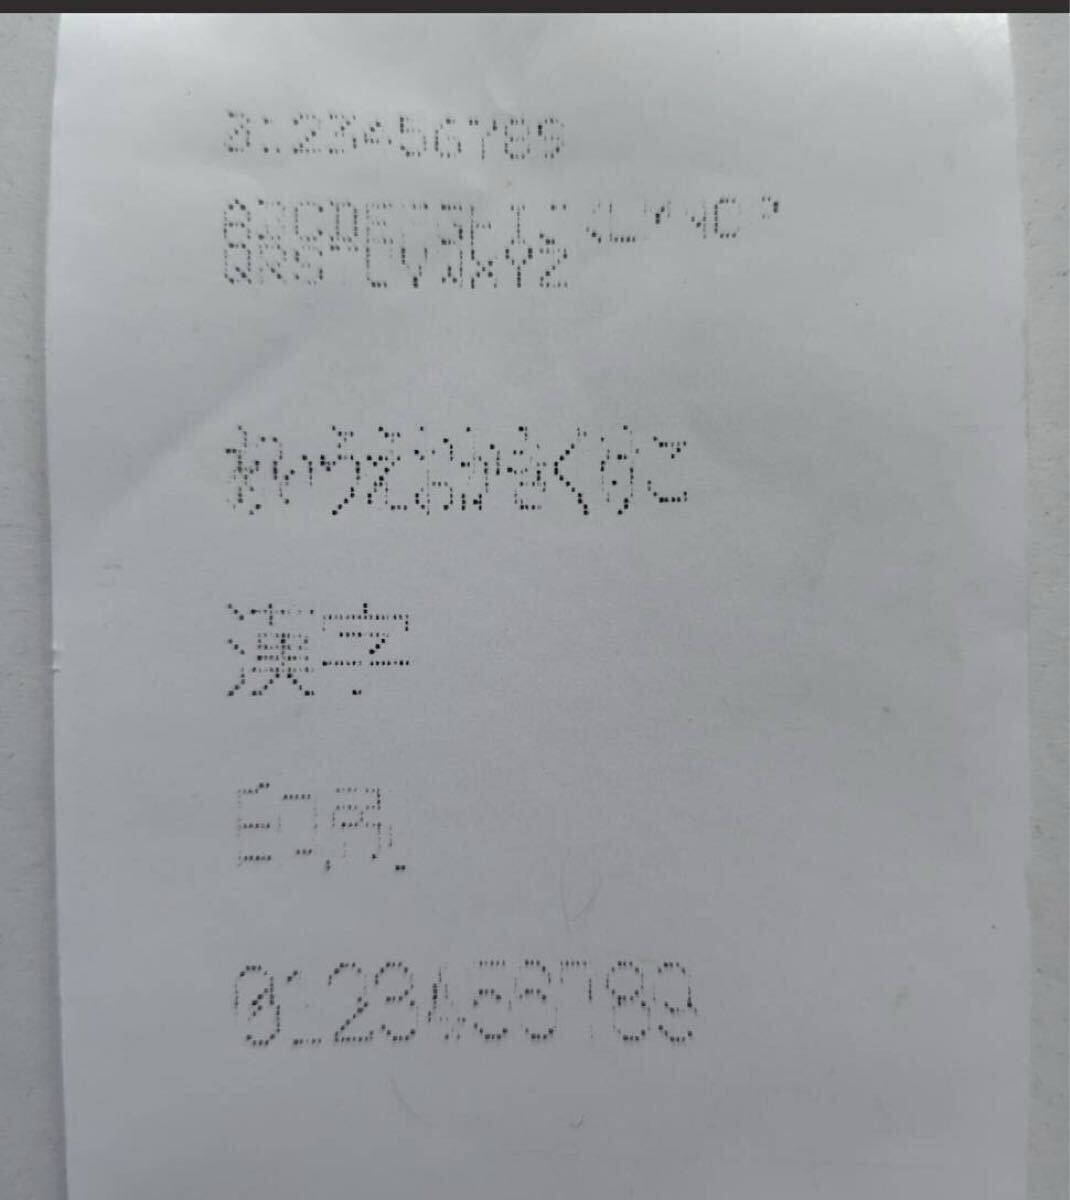 0123456789
ABCDEFGHIJKLMNOP
QRSTUVWXYZ
あいうえおかきくけこ
漢字
印刷
0123456789